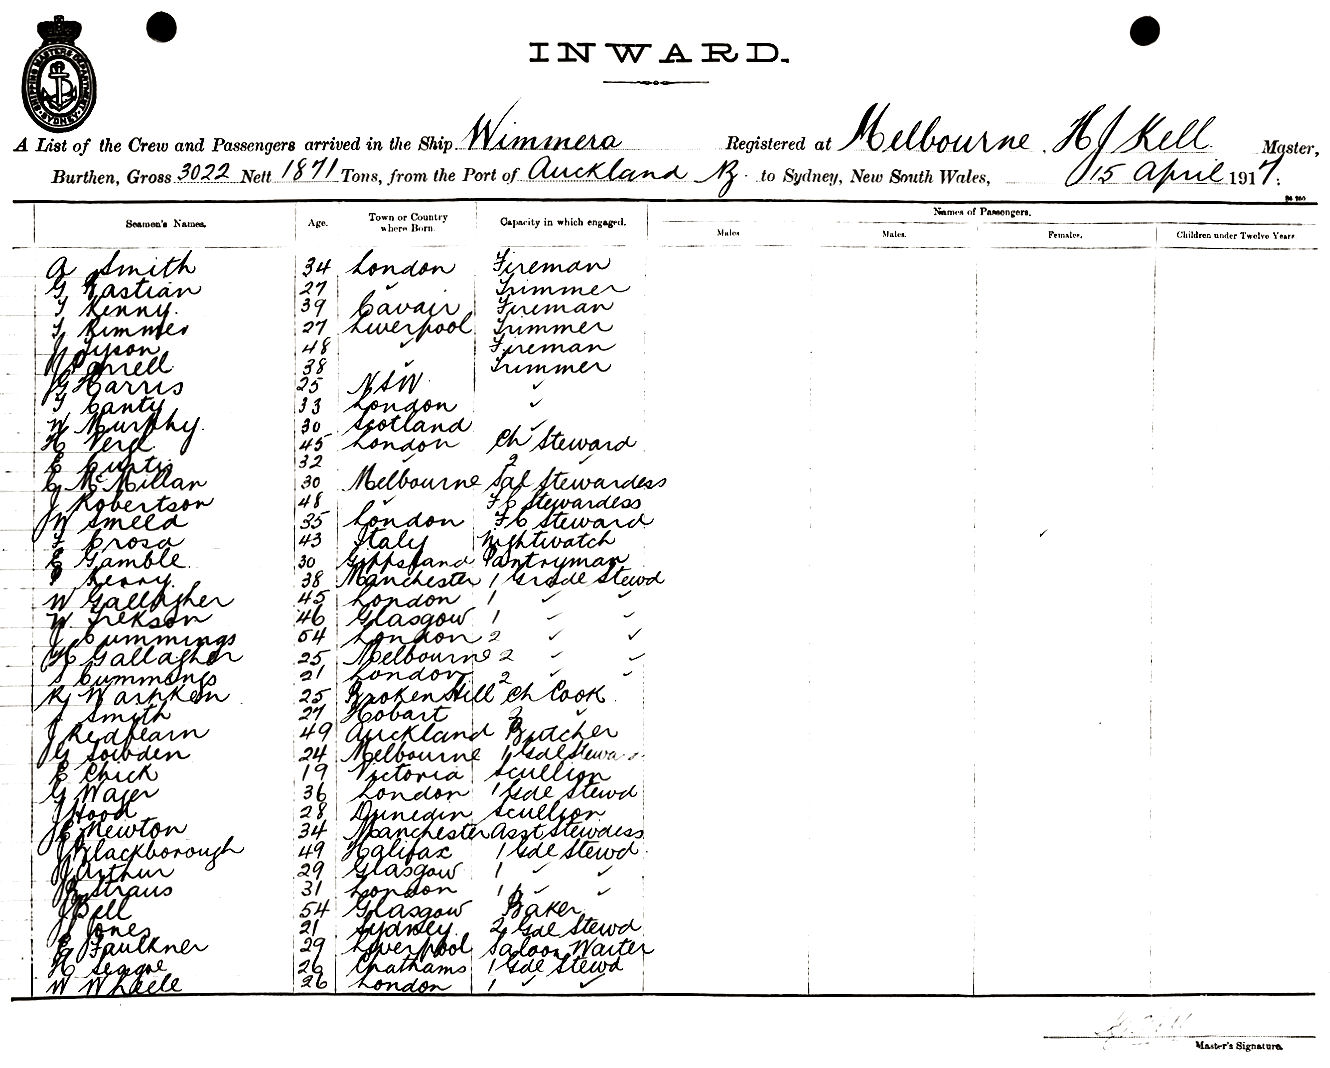 SHIPPING MASTERS DEPARTMENT SYDNEY
INWARD.
A List of the Crew and Passengers arrived in the Ship Wimmera Registered at Melbourne. H J Kell Master,
Burthen, Gross 3022 Nett 1871 Tons, from the Port of Auckland NZ. to Sydney, New South Wales, 15 April 1917.
Names of Passengers.
Seamen's Names. Age. Town or Country where Born. Capacity in which engaged. Males Males. Females. Children under Twelve Years
A Smith 34 London Fireman
G Bastian 27 ✓ Trimmer
T Kenny. 39 Fireman
T Rimmer 27 Liverpool Trimmer
J Tyson 48 ✓ Fireman
Parrell 38 ✓ Trimmer
G Harris 25 NSW ✓
T Canty 33 London ✓
W Murphy. 30 Scotland ✓
H Verd 45 London Ch Steward
E Curtis 32 ✓ 2 ✓
C McMillan 30 Melbourne Sal Stewardess
J Robertson 48 ✓ F C Stewardess
W Smeed 35 London F C Steward
F Crosa 43 Italy Nightwatch
E Gamble 30 Gippsland Pantryman
P Kenny. 38 Manchester 1 Grade Stewd
W Gallagher 45 London 1 ✓ ✓
W. Jrekson 46 Glasgow 1 ✓ ✓
J Cummings 54 London 2 ✓ ✓
H Gallagher 25 Melbourne 2 ✓ ✓
S Cummings 21 London 2 ✓ ✓
Warnken 25 Broken Hill Ch Cook
J Smith 27 Hobart 2 ✓
J Redfearn 49 Auckland Butcher
G Sowden 24 Melbourne 1 Gde Steward
E Chick 19 Victoria Scullion
G Wajer 36 London 1 Gde Stewd
J Hood 28 Dunedin Scullion
E Newton 34 Manchester Asst Stewdess
J Blackborough 49 Halifax 1 Gde Stewd
Arthur 29 Glasgow 1 ✓ ✓
Straus 31 London 1 ✓ ✓
J Bell 54 Glasgow Baker
J Jones 21 Sydney. 2 Gde Stewd
Faulkner 29 Liverpool Saloon Waiter
H Seagoe 26 Chathams 1 Gde Stewd
W Wheele 26 London 1 ✓ ✓
Master's Signature.